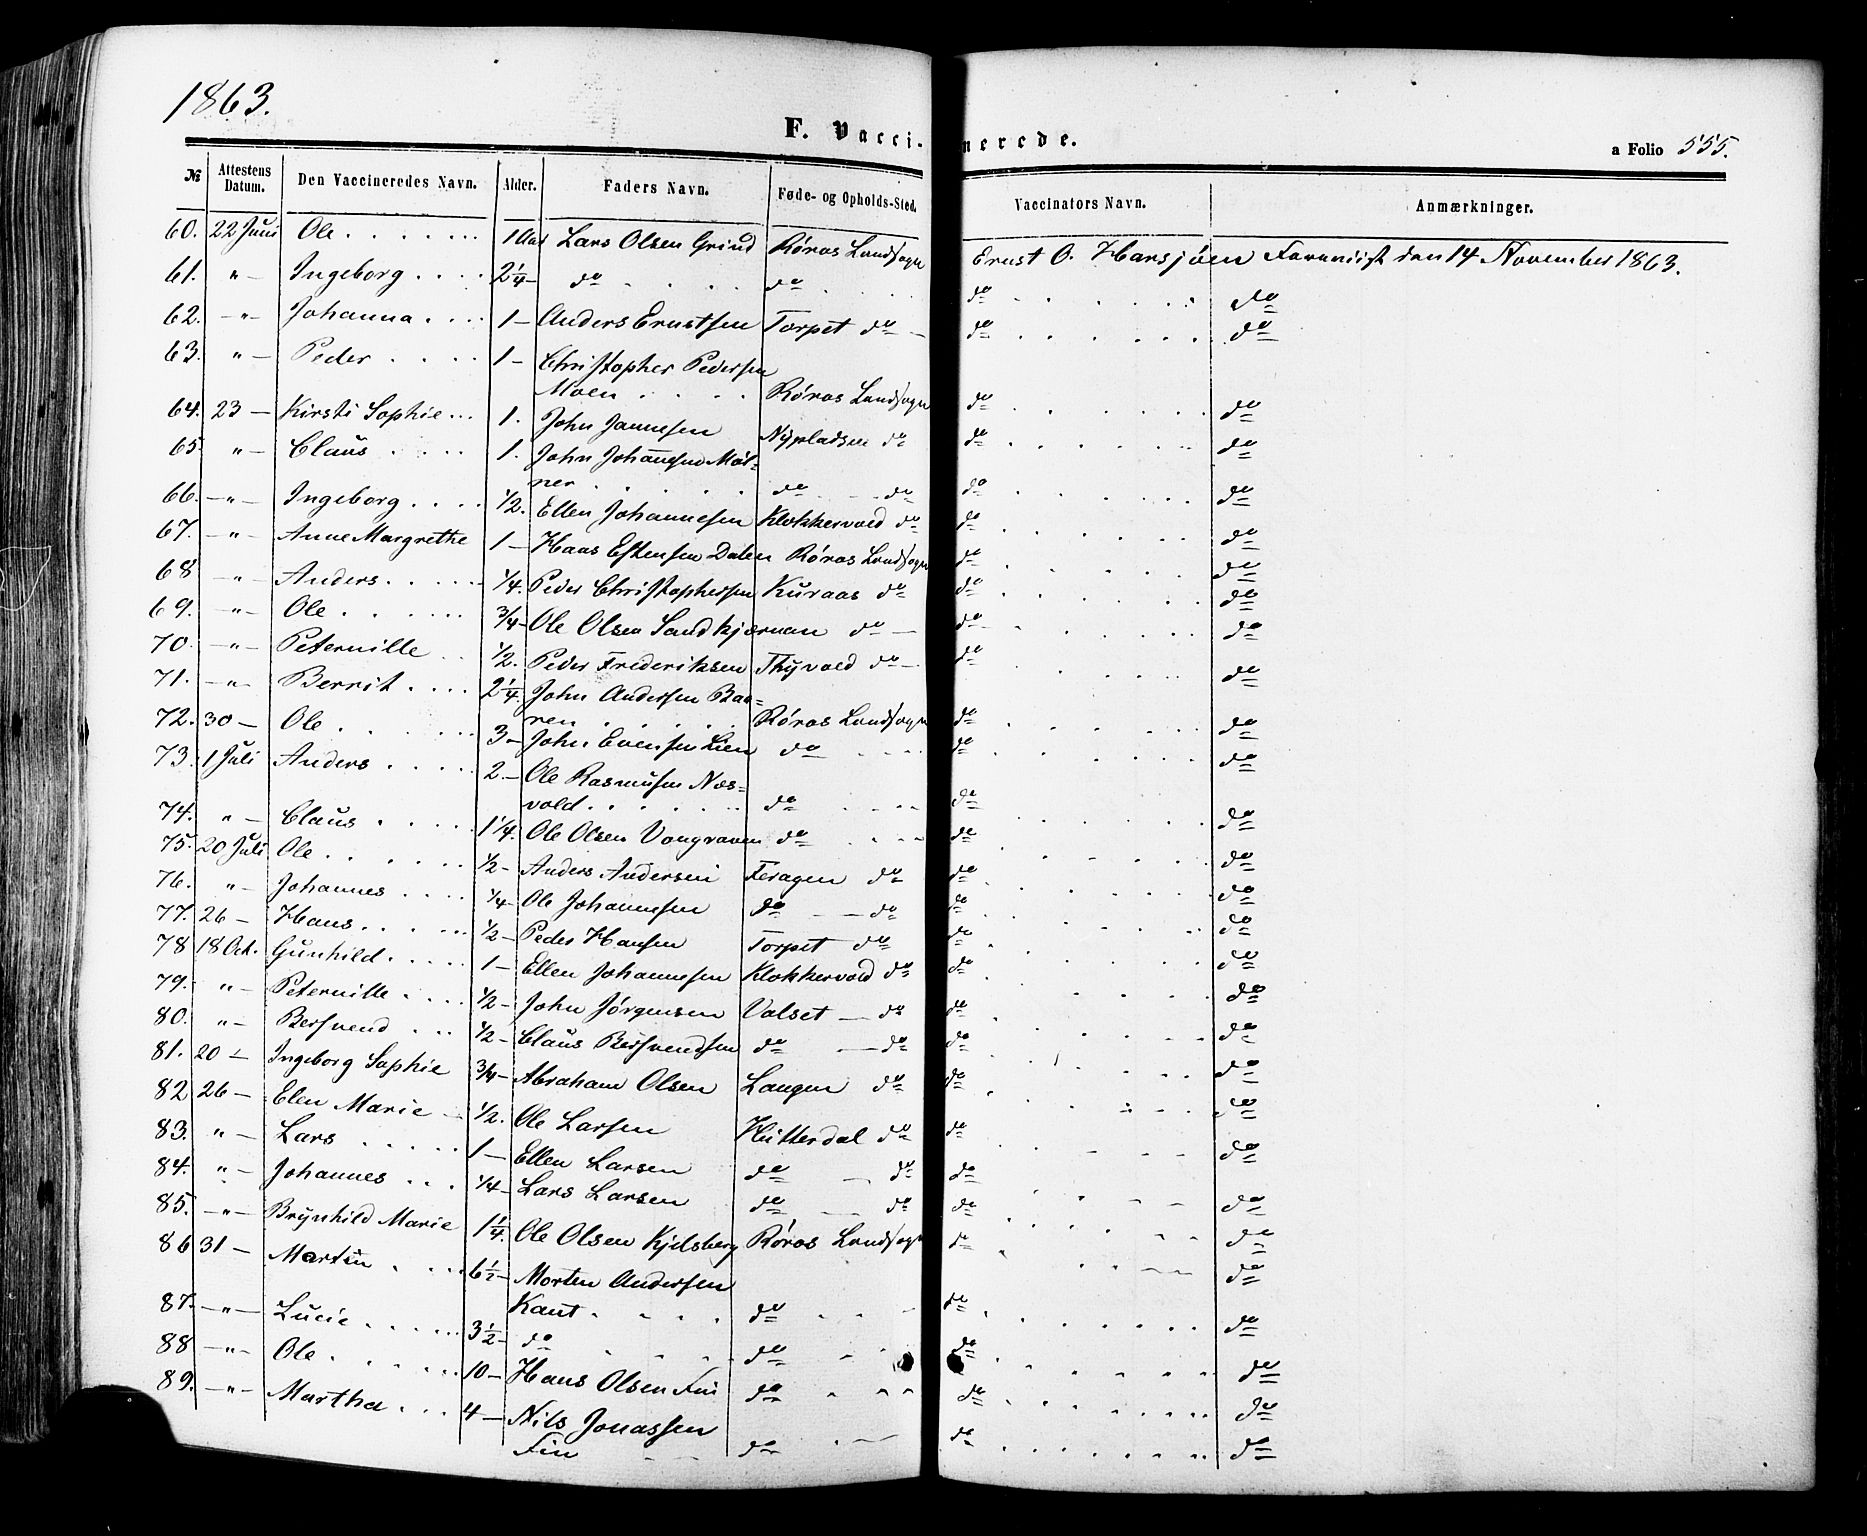 1863.
F. Vaccinerede.
a Folio 555.
№ Attestens Datum. Den Vaccineredes Navn. Alder. Faders Navn. Føde- og Opholds-Sted. Vaccinators Navn. Anmærkninger.
60. 22 Juni Ole . . . . . 1 Aar Lars Olsen Grind Røros Landsogn Ernst O. Harsjøen Foreviist den 14 November 1863.
61. " — Ingeborg . . . . 2¼ — do . . . . do . . do . . . . . do
62. — " — Johanna . . . . 1 — Anders Ernstsen Torpet do — do . . . . . do
63. " — Peder . . . . 1 — Christopher Pedersen
Moen . . . . Røros Landsogn do . . . . . do
64. 23 — Kirsti Sophie . . . 1. John Jannesen Nypladsen do do . . . . . do
65. " — Claus . . . . 1. John Johannesen Møl-
ner . . . . . do . . do do . . . . . do
66. — " — Ingeborg . . . . ½. Ellen Johannesen Klokkervold do do . . . . . do
67. — " — Anne Margrethe 1 — Haas Estensen Dalen Røros Landsogn do . . . . . do
68 — " — Anders . . . . . ¼. Peder Christophersen Kuraas do do . . . . . do
69. — " — Ole . . . . . ¾ — Ole Olsen Sandkjærnan do — do . . . . . do
70. — " — Peternille . . ½. Peder Frederiksen Thyvold do — do . . . . . do
71. — " — Berrit . . . . 2¼. John Andersen Baa-
ren . . . . . Røros Landsogn do . . . . . do
72. 30 — Ole . . . . . 3 — John Evensen Lien do . . . . do . . . . . do
73. 1 Juli Anders . . . . . 2 — Ole Rasmusen Næs-
vold . . . . . do . . . . do . . . . . do
74. " — Claus . . . . . 1¼. Ole Olsen Vongraven do . . . . do . . . . . do
75. 20 Juli Ole . . . . . ½ — Anders Andersen Feragen do do . . . . . do
76. " — Johannes . . . . ¼ — Ole Johannesen do — — do do . . . . . do
77. 26 — Hans . . . . . ½ — Peder Hansen Torpet do do . . . . . do
78 18 Oct. Gunhild . . . . . 1 — Ellen Johannesen Klokkervold do do . . . . . do
79. " — Peternille . . . . ½ — John Jørgensen Valset — do do . . . . . do
80. " — Bersvend . . . ½ — Claus Bersvendsen do — do do . . . . . do
81. 20 — Ingeborg Sophie ¾ — Abraham Olsen Langen do do . . . . . do
82 26 — Elen Marie — ½. Ole Larsen Hitterdal do do . . . . . do
83. " — Lars . . . . . 1 — Ellen Larsen do — do do . . . . . do
84. " — Johannes . . . ¼ — Lars Larsen do — do do . . . . . do
85. — " — Brynhild Marie 1¼. Ole Olsen Kjelsberg Røros Landsogn do . . . . . do
86 31 — Martin . . . . 6½ — Morten Andersen
Kant . . . . . do . . . do . . . . . do
87. — " — Lucie . . . . . 3½ — do . . . . do . . . do . . . . . do
88 — " — Ole . . . . . 10 — Hans Olsen Fin do . . . do . . . . . do
89. — " — Martha . . . 4 — Nils Jonassen
Fin — — do . . . do . . . . . do